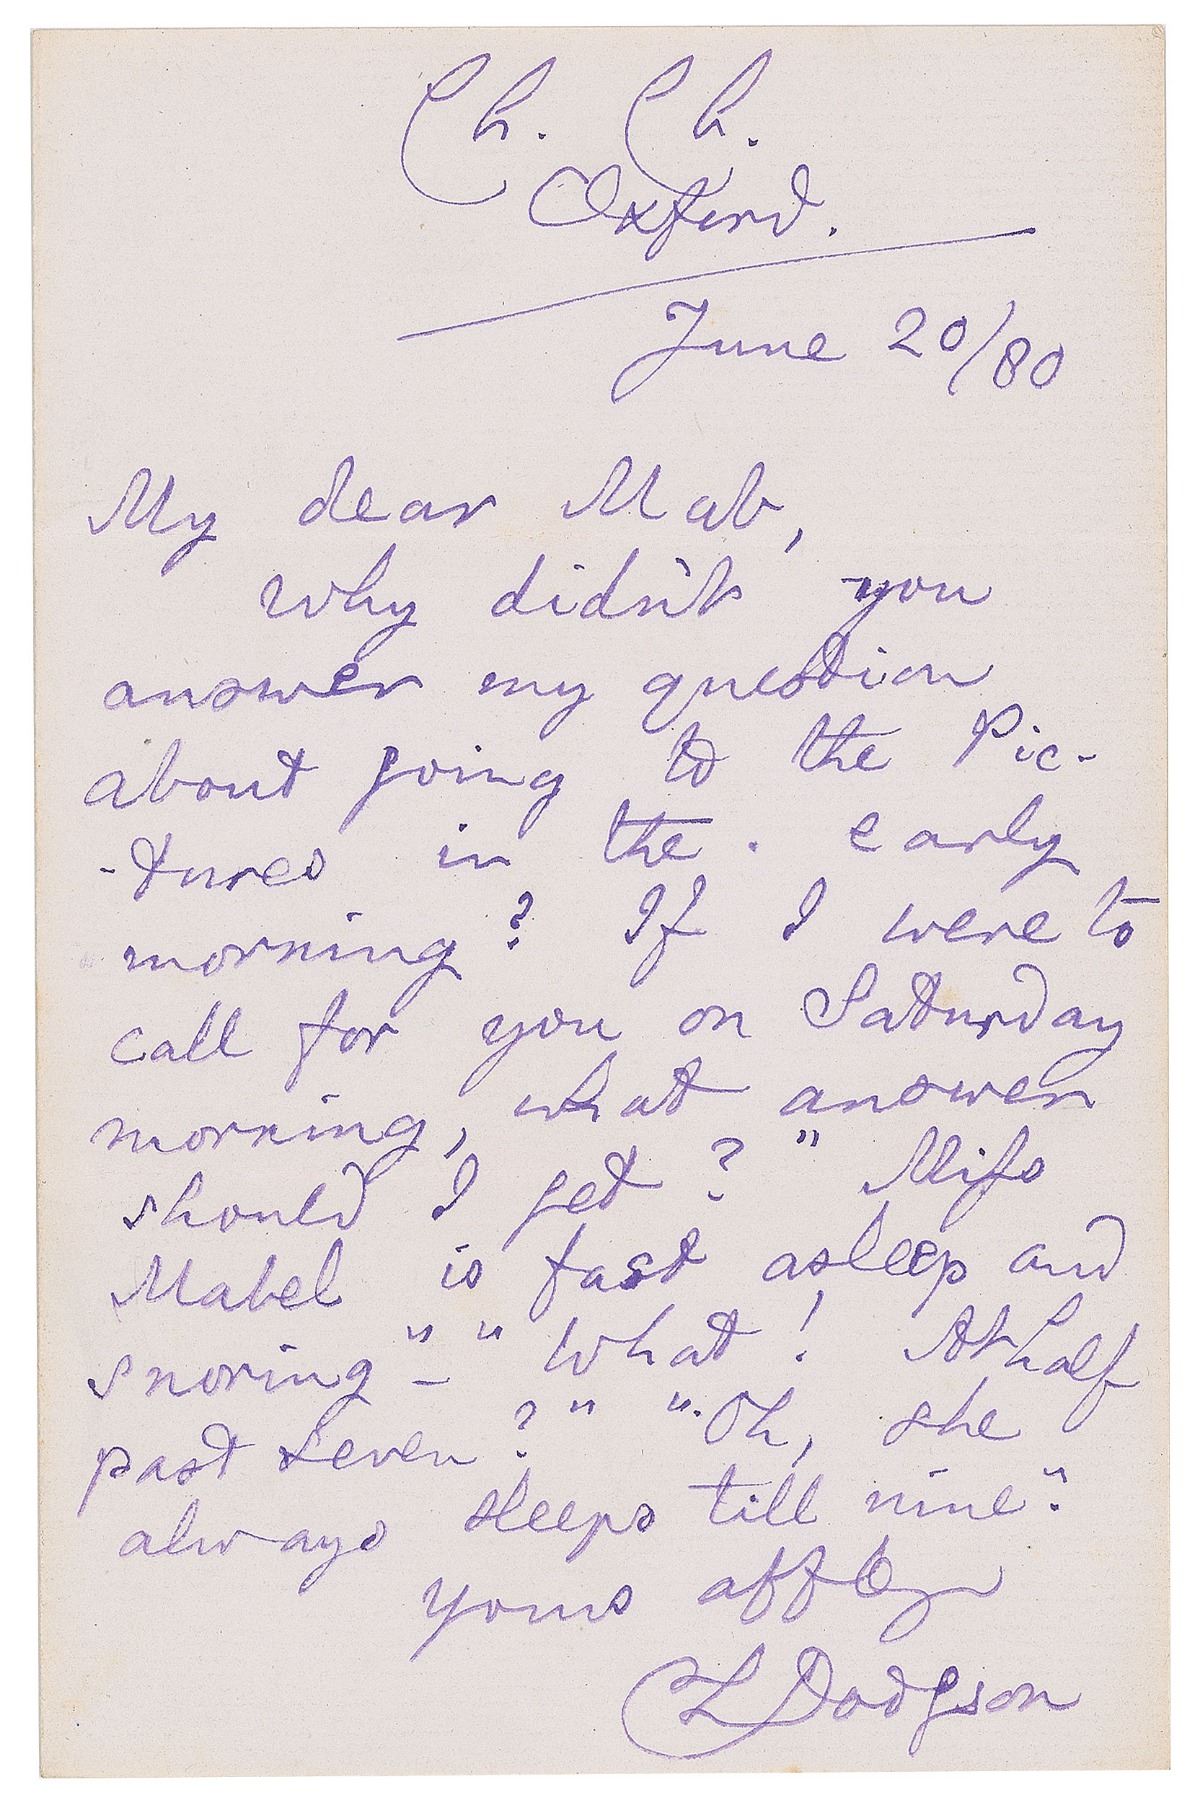 Ch. Ch.
Oxford.
June 20/80
My dear Mab,
why didn't you
answer my question
about going to the Pic-
-tures in the . early
morning? If I were to
call for you on Saturday
morning, what answer
should I get? " Miſs
Mabel is fast asleep and
snoring"– "What! At half
past seven?" "Oh, she
always sleeps till nine".
yours affly
CL Dodgson